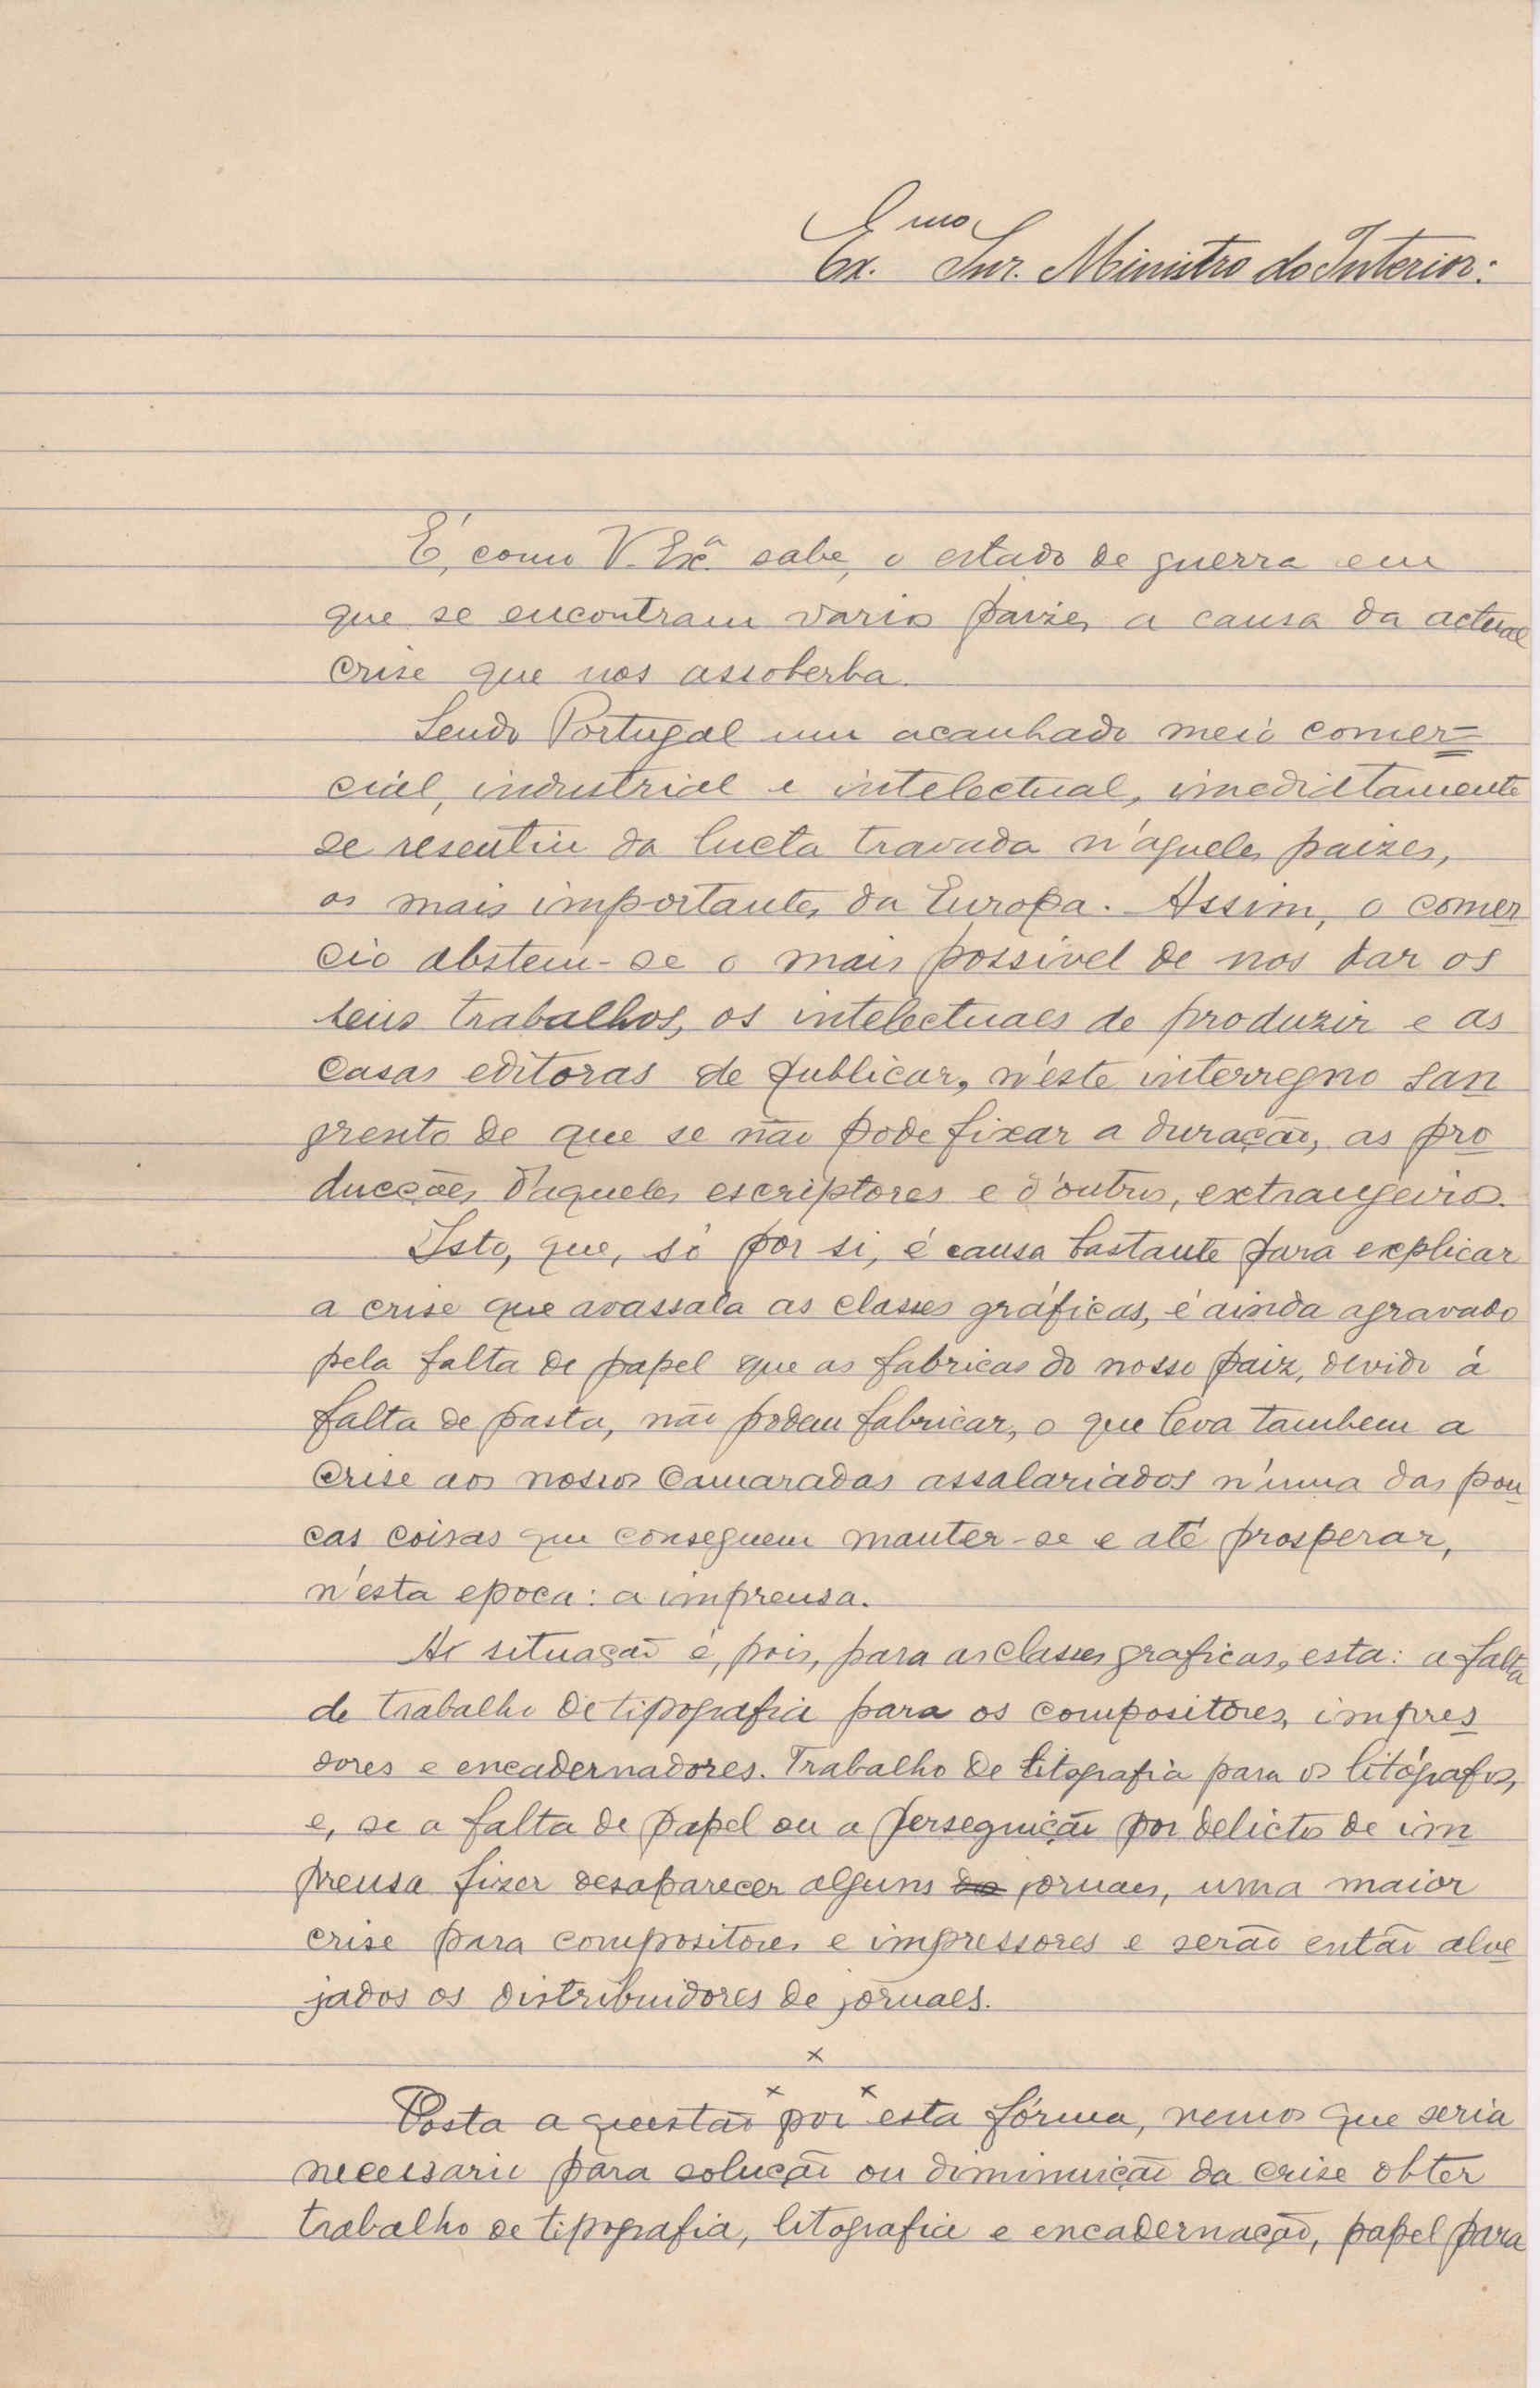 Exmo Snr. Ministro do Interior:
É, como V. Exª sabe, o estado de guerra em
que se encontram varios paizes a causa da actual
crise que nos assoberba.
Sendo Portugal um acanhado meio comer=
cial, industrial e intelectual, imediatamente
se resentiu da lucta travada n'aqueles paizes,
os mais importantes da Europa. Assim, o comer
cio abstem-se o mais possivel de nos dar os
seus trabalhos, os intelectuaes de produzir e as
casas editoras de publicar, n'éste interregno san
grento de que se não pode fixar a duração, as pro
ducções d'aqueles escriptores e d'outros, extrangeiros.
Isto, que, só por si, é causa bastante para explicar
a crise que avassala as classes gráficas, é ainda agravado
pela falta de papel que as fabricas do nosso paiz, devido á
falta de pasta, não podem fabricar, o que leva tambem a
crise aos nossos camaradas assalariados n'uma das pou
cas coisas que conseguem manter-se e até prosperar,
n'ésta epoca: a imprensa.
A situação é, pois, para as classes graficas, esta: a falta
de trabalho de tipografia para os compositores, impres
sores e encadernadores. Trabalho de litografia para os litógrafos,
e, se a falta de papel ou a perseguição por delictos de im
prensa fizer desaparecer alguns dos jornaes, uma maior
crise para compositores e impressores e serão então alve
jados os distribuidores de jornaes.
x
x x
Posta a questão por esta fórma, vemos que seria
necessario para solução ou diminuição da crise obter
trabalho de tipografia, litografia e encadernação, papel para